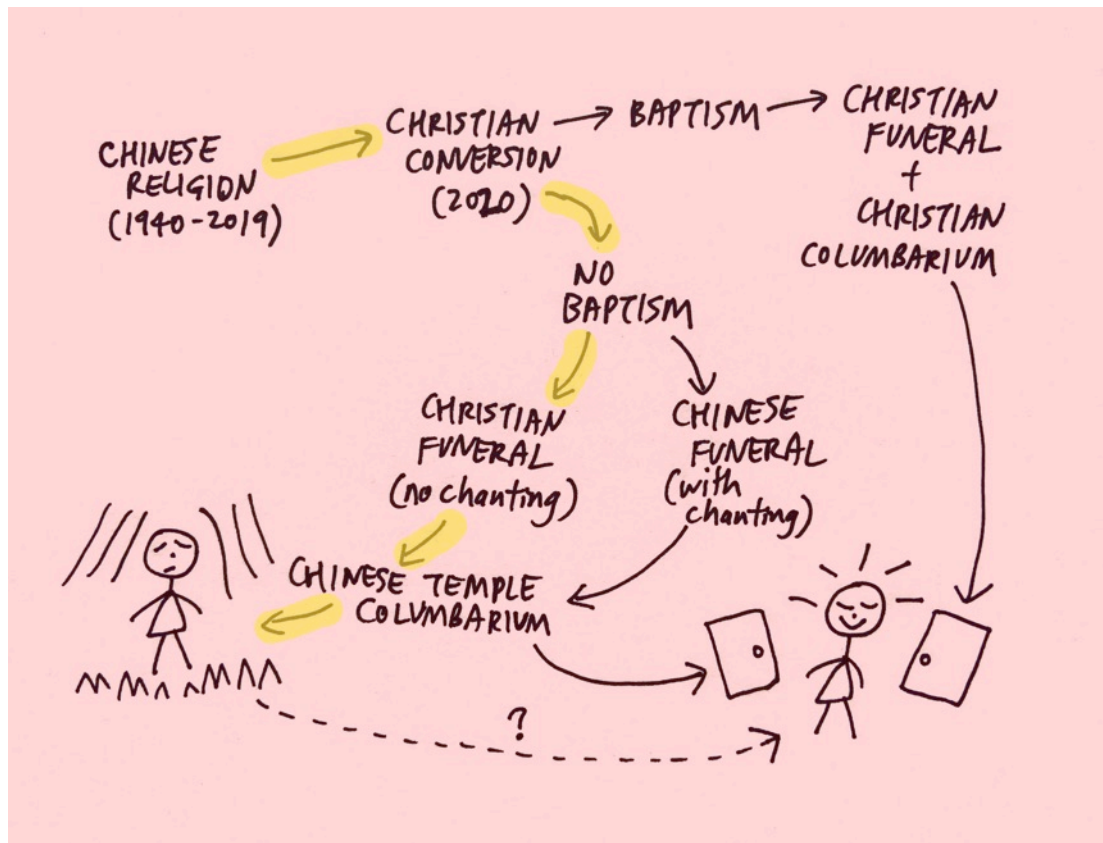 CHINESE
RELIGION
(1940-2019)
CHRISTIAN
CONVERSION
(2020)
BAPTISM
CHRISTIAN
FUNERAL
+
CHRISTIAN
COLUMBARIUM
NO
BAPTISM
CHRISTIAN
FUNERAL
(no chanting)
CHINESE
FUNERAL
(with
chanting)
CHINESE TEMPLE
COLUMBARIUM
?